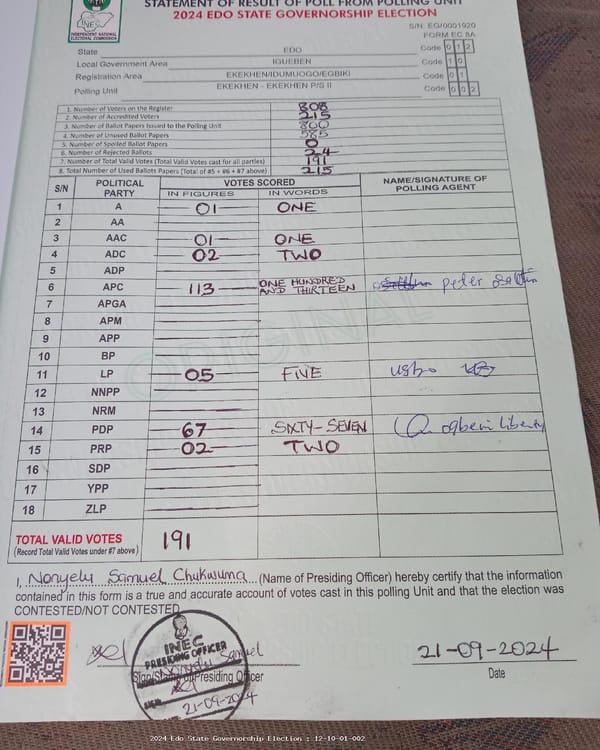 STATEMENT OF RESULT OF POLL FROM POLLING UNIT
2024 EDO STATE GOVERNORSHIP ELECTION
INEC
INDEPENDENT NATIONAL ELECTORAL COMMISSION
S/N: EG/0001920
FORM EC 8A
State EDO Code 0 1 2
Local Government Area IGUEBEN Code 1 0
Registration Area EKEKHEN/IDUMUOGO/EGBIKI Code 0 1
Polling Unit EKEKHEN - EKEKHEN P/S II Code 0 0 2
1. Number of Voters on the Register 808
2. Number of Accredited Voters 215
3. Number of Ballot Papers Issued to the Polling Unit 800
4. Number of Unused Ballot Papers 585
5. Number of Spoiled Ballot Papers 0
6. Number of Rejected Ballots 24
7. Number of Total Valid Votes (Total Valid Votes cast for all parties) 191
8. Total Number of Used Ballots Papers (Total of #5 + #6 + #7 above) 215
S/N POLITICAL PARTY VOTES SCORED NAME/SIGNATURE OF POLLING AGENT
IN FIGURES IN WORDS
1 A 01 ONE
2 AA
3 AAC 01 ONE
4 ADC 02 TWO
5 ADP
6 APC 113 ONE HUNDRED AND THIRTEEN peter
7 APGA
8 APM
9 APP
10 BP
11 LP 05 FIVE
12 NNPP
13 NRM
14 PDP 67 SIXTY-SEVEN ogbein liberty
15 PRP 02 TWO
16 SDP
17 YPP
18 ZLP
ORIGINAL
TOTAL VALID VOTES 191
(Record Total Valid Votes under #7 above)
I, Nonyelu Samuel Chukwuma (Name of Presiding Officer) hereby certify that the information
contained in this form is a true and accurate account of votes cast in this polling Unit and that the election was
CONTESTED/NOT CONTESTED
INEC
PRESIDING OFFICER
Nonyelu Samuel
21-09-2024
Sign/Stamp of Presiding Officer
21-09-2024
Date
2024 Edo State Governorship Election : 12-10-01-002